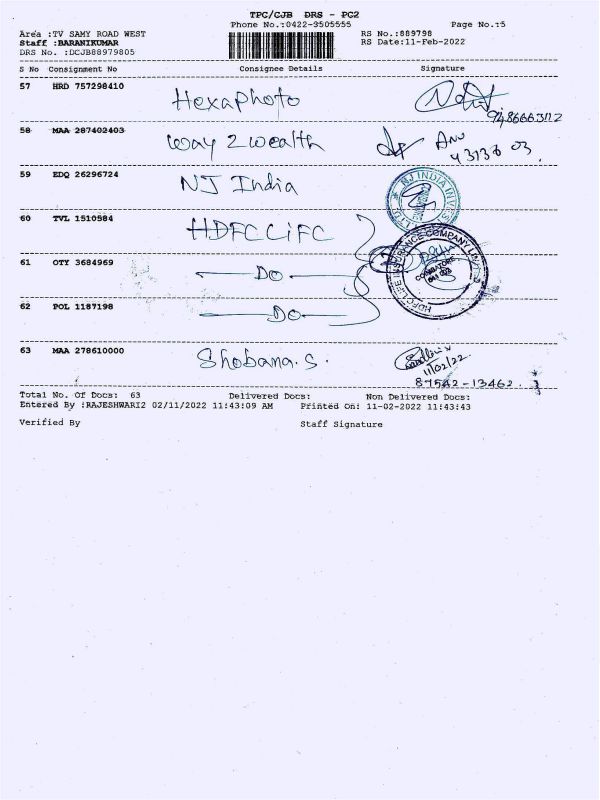 TPC/CJB DRS - PC2
Phone No.:0422-3505555 Page No.:5
Area :TV SAMY ROAD WEST RS No.:889798
Staff :BARANIKUMAR RS Date:11-Feb-2022
DRS No. :DCJB88979805
S No Consignment No Consignee Details Signature
57 HRD 757298410 Hexaphoto
9486663112
58 MAA 287402403 Way 2 wealth Anu
43136 03
59 EDQ 26296724 NJ India NJ INDIA INVES LTD
60 TVL 1510584 HDFC LiFC
HDFC LIFE INSURANCE COMPANY LIMITED
COIMBATORE
61 OTY 3684969 DO
62 POL 1187198 DO
63 MAA 278610000 Shobana.S.
11/02/22
87542-13462
Total No. Of Docs: 63 Delivered Docs: Non Delivered Docs:
Entered By :RAJESHWARI2 02/11/2022 11:43:09 AM Printed On: 11-02-2022 11:43:43
Verified By Staff Signature